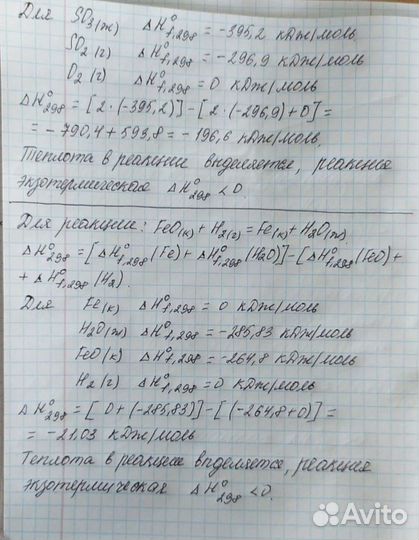 Для SO₃(ж) ΔH°f,298 = -395,2 кДж/моль
SO₂(г) ΔH°f,298 = -296,9 кДж/моль
O₂(г) ΔH°f,298 = 0 кДж/моль
ΔH°298 = [2·(-395,2)] - [2·(-296,9)+0] =
= -790,4 + 593,8 = -196,6 кДж/моль.
Теплота в реакции выделяется, реакция
экзотермическая ΔH°298 < 0.
Для реакции: FeO(к) + H₂(г) = Fe(к) + H₂O(ж).
ΔH°298 = [ΔH°f,298(Fe) + ΔH°f,298(H₂O)] - [ΔH°f,298(FeO) +
+ ΔH°f,298(H₂).
Для Fe(к) ΔH°f,298 = 0 кДж/моль
H₂O(ж) ΔH°f,298 = -285,83 кДж/моль
FeO(к) ΔH°f,298 = -264,8 кДж/моль
H₂(г) ΔH°f,298 = 0 кДж/моль
ΔH°298 = [0+(-285,83)] - [(-264,8+0)] =
= -21,03 кДж/моль
Теплота в реакции выделяется, реакция
экзотермическая ΔH°298 < 0.
Avito